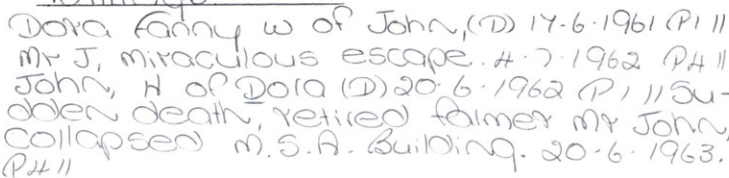 Dora Fanny W of John, (D) 17-6-1961 (P1 ||
Mr J, miraculous escape. 4.7.1962 P4 ||
John, H of Dora (D) 20.6.1962 (P1 || Su-
dden death, retired farmer Mr John,
collapsed M.S.A. Building. 20.6.1963.
(P4 ||